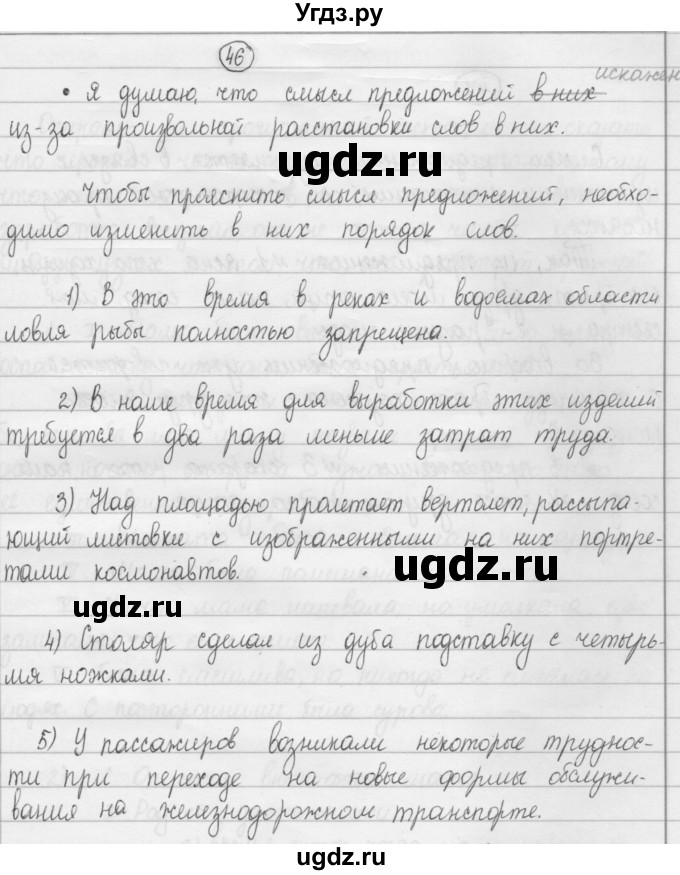 Угдз.ру
46
искажен
• Я думаю, что смысл предложений в них
из-за произвольной расстановки слов в них.
ugdz.ru
Чтобы прояснить смысл предложений, необхо-
димо изменить в них порядок слов.
1) В это время в реках и водоемах области
ловля рыбы полностью запрещена.
ugdz.ru
2) В наше время для выработки этих изделий
требуется в два раза меньше затрат труда.
3) Над площадью пролетает вертолет, рассыпа-
ющий листовки с изображенными на них портре-
тами космонавтов.
ugdz.ru
ugdz.ru
4) Столяр сделал из дуба подставку с четырь-
мя ножками.
5) У пассажиров возникали некоторые труднос-
ти при переходе на новые формы обслужи-
вания на железнодорожном транспорте.
ugdz.ru